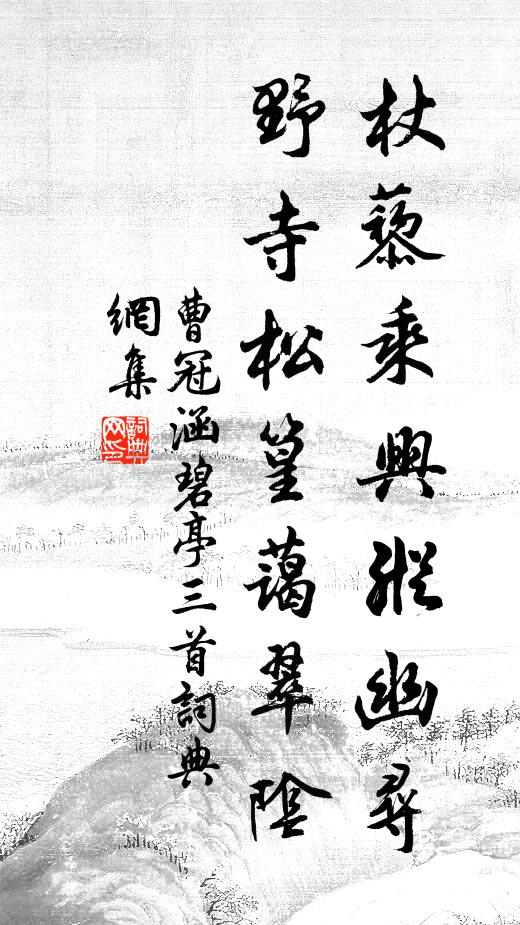 杖藜乘興縱幽尋
野寺松篁藹翠陰
曹冠涵碧亭三首詞典
網集
詞典網印